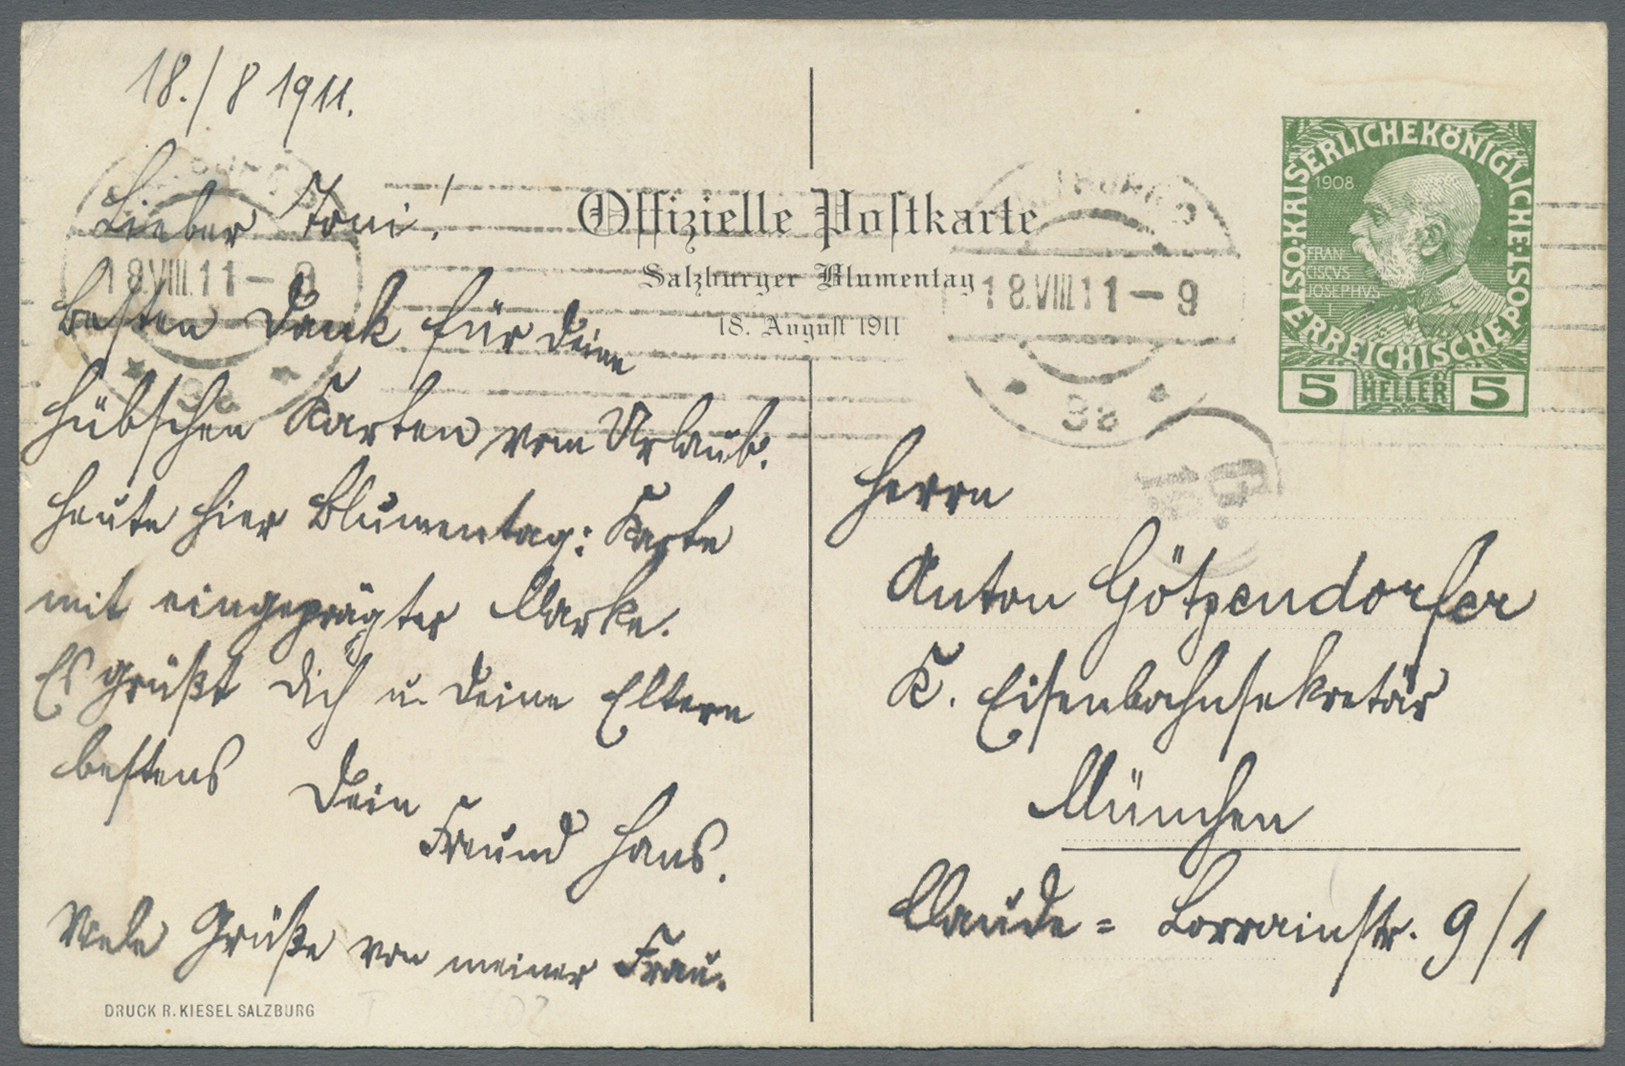 18./8 1911.
Lieber Toni!
Besten Dank für Deine
hübschen Karten vom Urlaub.
Heute hier Blumentag: Karte
mit eingeprägter Marke.
Es grüßt Dich u. Deine Eltern
bestens Dein
Freund Hans.
Viele Grüße von meiner Frau.
DRUCK R. KIESEL SALZBURG
Offizielle Postkarte
Salzburger Blumentag
18. August 1911
18.VIII.11-9
18.VIII.11-9
KAISERLICHEKÖNIGLICHE
ÖSTERREICHISCHEPOST
1908
FRAN
CISCVS
JOSEPHVS
I
5 HELLER 5
Herrn
Anton Götzendorfer
K. Eisenbahnsekretär
München
Claude = Lorrainstr. 9/1